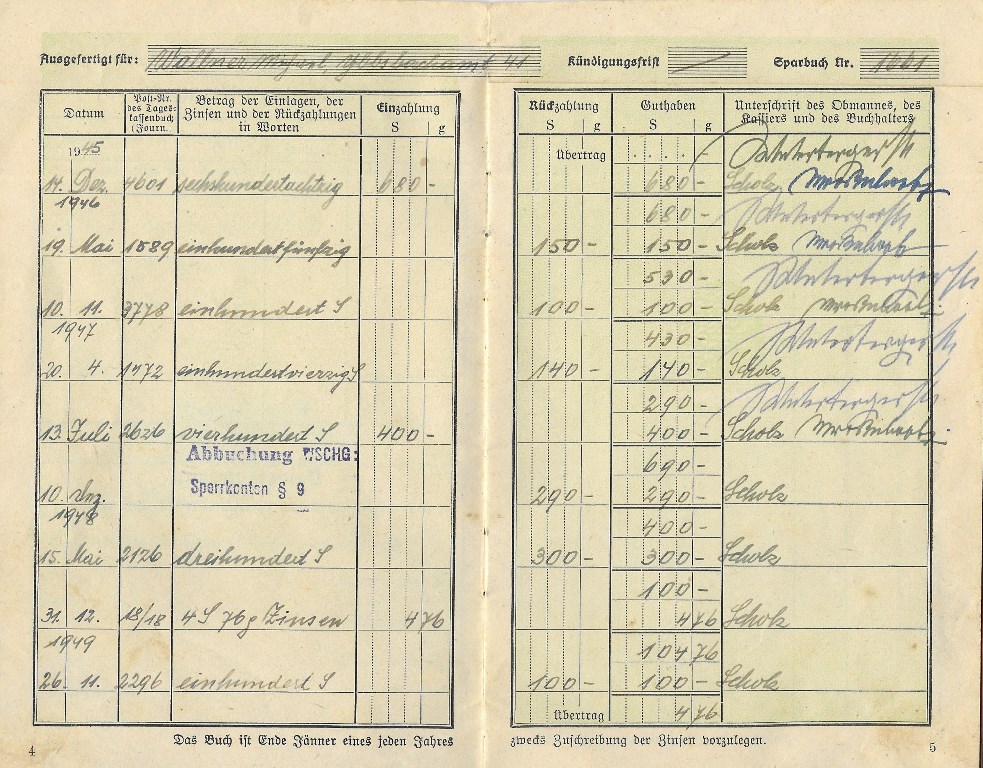 Ausgefertigt für: Wallner Ybbsbachamt 41
Kündigungsfrist
Sparbuch Nr. 1661
Datum
Post-Nr. des Tages-kassenbuch (Journ.
Betrag der Einlagen, der Zinsen und der Rückzahlungen in Worten
Einzahlung
S g
Rückzahlung
S g
Guthaben
S g
Unterschrift des Obmannes, des Kassiers und des Buchhalters
1945 Übertrag . . . . -
14. Dez. 4601 sechshundertachtzig 680 - 680 - Scholz
1946 680 -
19. Mai 1589 einhundertfünfzig 150 - 150 - Scholz
530 -
10. 11. 3778 einhundert S 100 - 100 - Scholz
1947 430 -
20. 4. 1772 einhundertvierzig S 140 - 140 - Scholz
290 -
13. Juli 2626 vierhundert S 400 - 400 - Scholz
Abbuchung WSCHG: 690 -
Sperrkonten § 9
10. Dez. 290 - 290 - Scholz
1948 400 -
15. Mai 2126 dreihundert S 300 - 300 - Scholz
100 -
31. 12. 18/18 4 S 76 g Zinsen 4 76 4 76 Scholz
1949 104 76
26. 11. 2296 einhundert S 100 - 100 - Scholz
Übertrag 4 76
Das Buch ist Ende Jänner eines jeden Jahres
zwecks Zuschreibung der Zinsen vorzulegen.
4
5